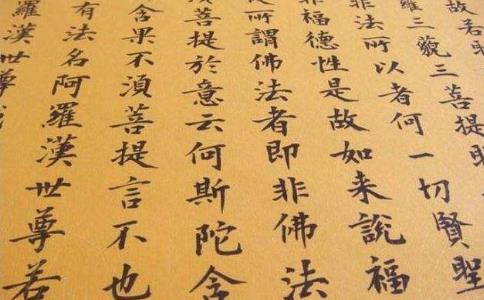 故若取
羅三藐三菩提耶
非法所以者何一切賢聖
非福德性是故如来說福
所謂佛法者即非佛法
須菩提於意云何斯陀含
含果不須菩提言不也
有法名阿羅漢世尊若
羅漢世尊